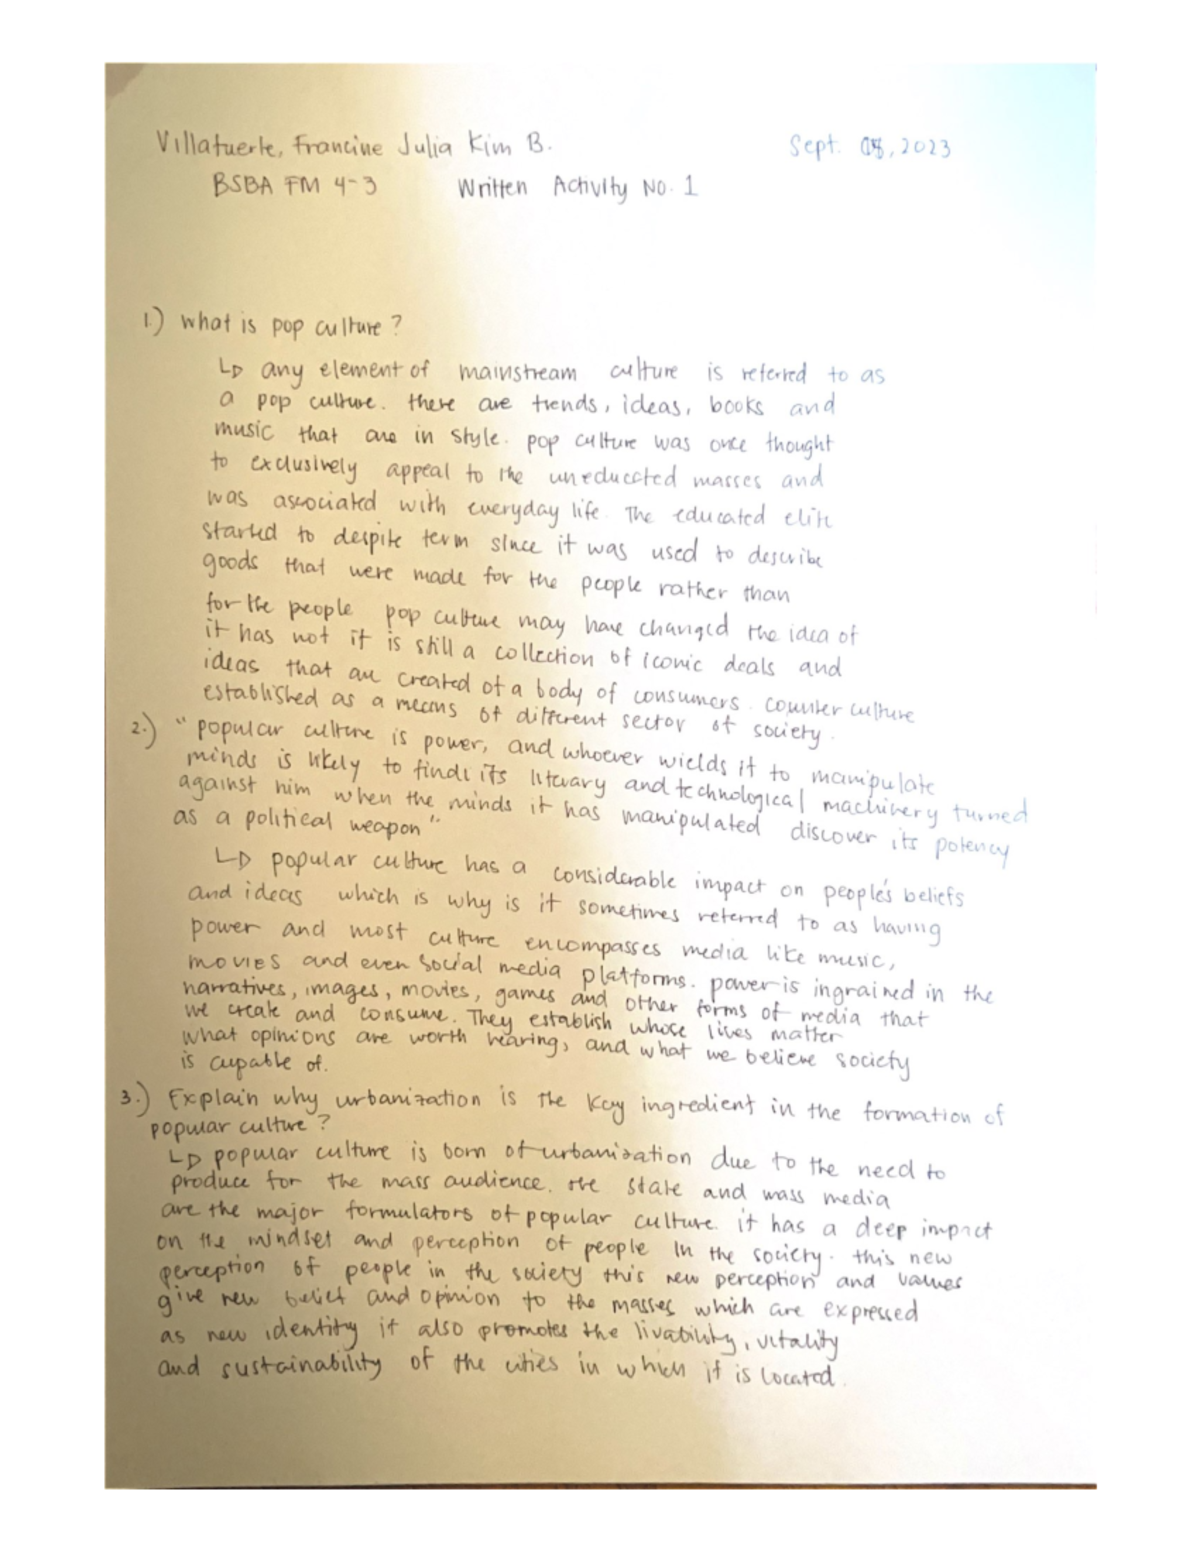 Villafuerte, Francine Julia Kim B. Sept. 08, 2023
BSBA FM 4-3 Written Activity No. 1
1.) What is pop culture?
↳ any element of mainstream culture is referred to as
a pop culture. there are trends, ideas, books and
music that are in style. pop culture was once thought
to exclusively appeal to the uneducated masses and
was associated with everyday life. The educated elite
started to despite term since it was used to describe
goods that were made for the people rather than
for the people pop culture may have changed the idea of
it has not it is still a collection of iconic deals and
ideas that are created of a body of consumers. counter culture
established as a means of different sector of society.
2.) "popular culture is power, and whoever wields it to manipulate
minds is likely to find its literary and technological machinery turned
against him when the minds it has manipulated discover its potency
as a political weapon"
↳ popular culture has a considerable impact on people's beliefs
and ideas which is why is it sometimes referred to as having
power and most culture encompasses media like music,
movies and even social media platforms. power is ingrained in the
narratives, images, movies, games and other forms of media that
we create and consume. They establish whose lives matter
what opinions are worth hearing, and what we believe society
is capable of.
3.) Explain why urbanization is the key ingredient in the formation of
popular culture?
↳ popular culture is born of urbanization due to the need to
produce for the mass audience. the state and wass media
are the major formulators of popular culture. it has a deep impact
on the mindset and perception of people in the society. this new
perception of people in the society this new perception and values
give new belief and opinion to the masses which are expressed
as new identity it also promotes the livability, vitality
and sustainability of the cities in which it is located.